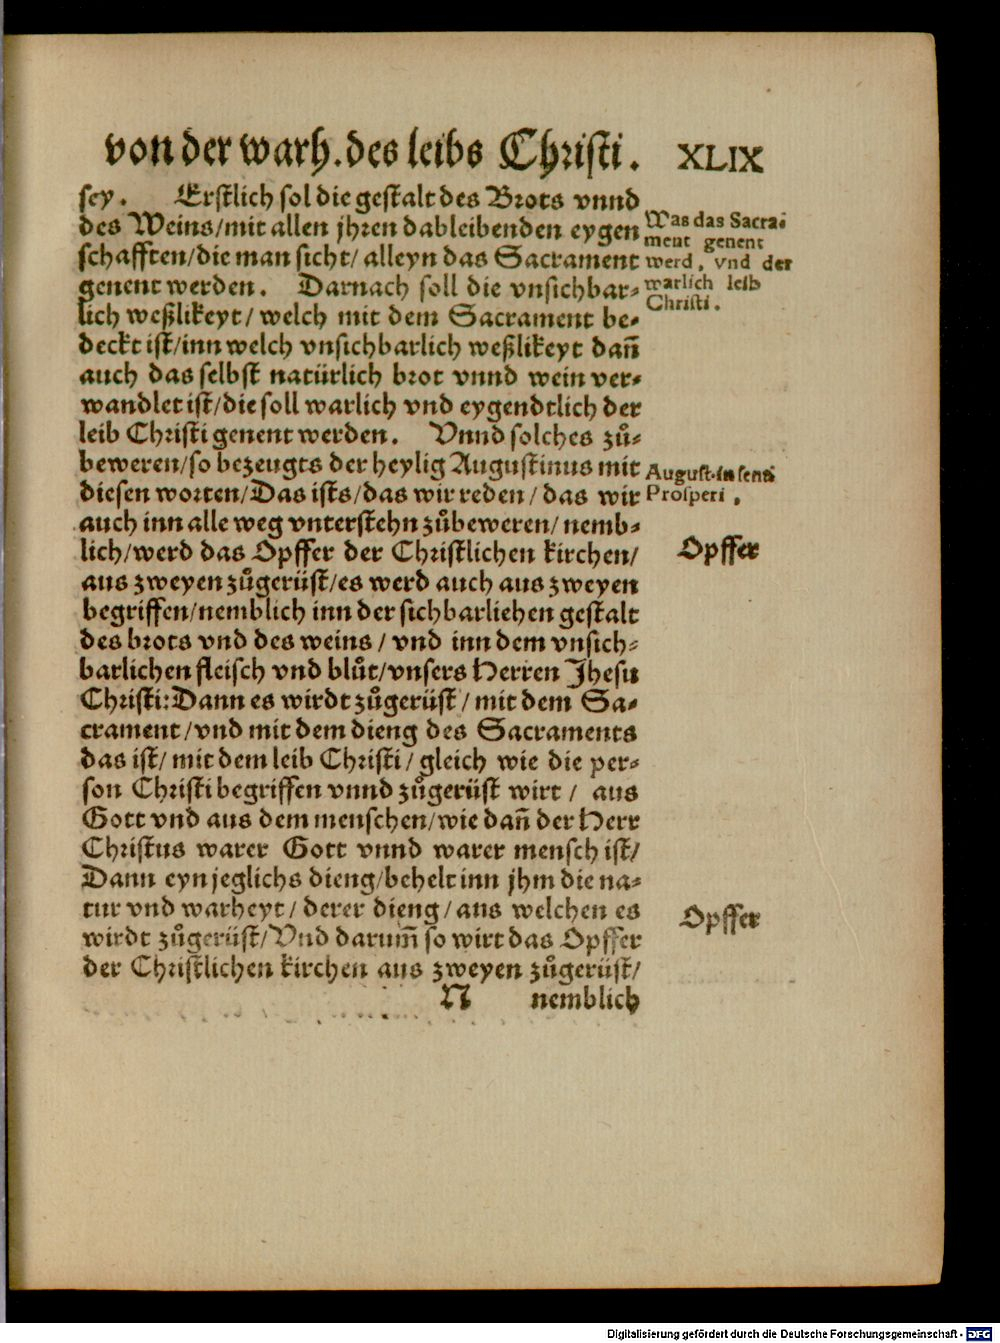 von der warh. des leibs Christi. XLIX
sey. Erstlich sol die gestalt des Brots vnnd
des Weins/mit allen jhren dableibenden eygen
schafften/die man sicht/ alleyn das Sacrament
genent werden. Darnach soll die vnsichbar-
lich weßlikeyt/ welch mit dem Sacrament be-
deckt ist/inn welch vnsichbarlich weßlikeyt dañ
auch das selbst natürlich brot vnnd wein ver-
wandlet ist/die soll warlich vnd eygendtlich der
leib Christi genent werden. Vnnd solches zů-
beweren/so bezeugts der heylig Augustinus mit
diesen worten/Das ists/das wir reden/ das wir
auch inn alle weg vnterstehn zůbeweren/ nemb-
lich/werd das Opffer der Christlichen kirchen/
aus zweyen zůgerüst/es werd auch aus zweyen
begriffen/nemblich inn der sichbarliehen gestalt
des brots vnd des weins/ vnd inn dem vnsich-
barlichen fleisch vnd blůt/vnsers Herren Jhesu
Christi:Dann es wirdt zůgerüst/ mit dem Sa-
crament/vnd mit dem dieng des Sacraments
das ist/ mit dem leib Christi/ gleich wie die per-
son Christi begriffen vnnd zůgerüst wirt/ aus
Gott vnd aus dem menschen/wie dañ der Herr
Christus warer Gott vnnd warer mensch ist/
Dann eyn jeglichs dieng/behelt inn jhm die na-
tur vnd warheyt/ derer dieng/aus welchen es
wirdt zůgerüst/Vnd darum̃ so wirt das Opffer
der Christlichen kirchen aus zweyen zůgerüst/
N nemblich
Was das Sacra-
ment genent
werd, vnd der
warlich leib
Christi.
August. in sent.
Prosperi.
Opffer
Opffer
Digitalisierung gefördert durch die Deutsche Forschungsgemeinschaft - DFG